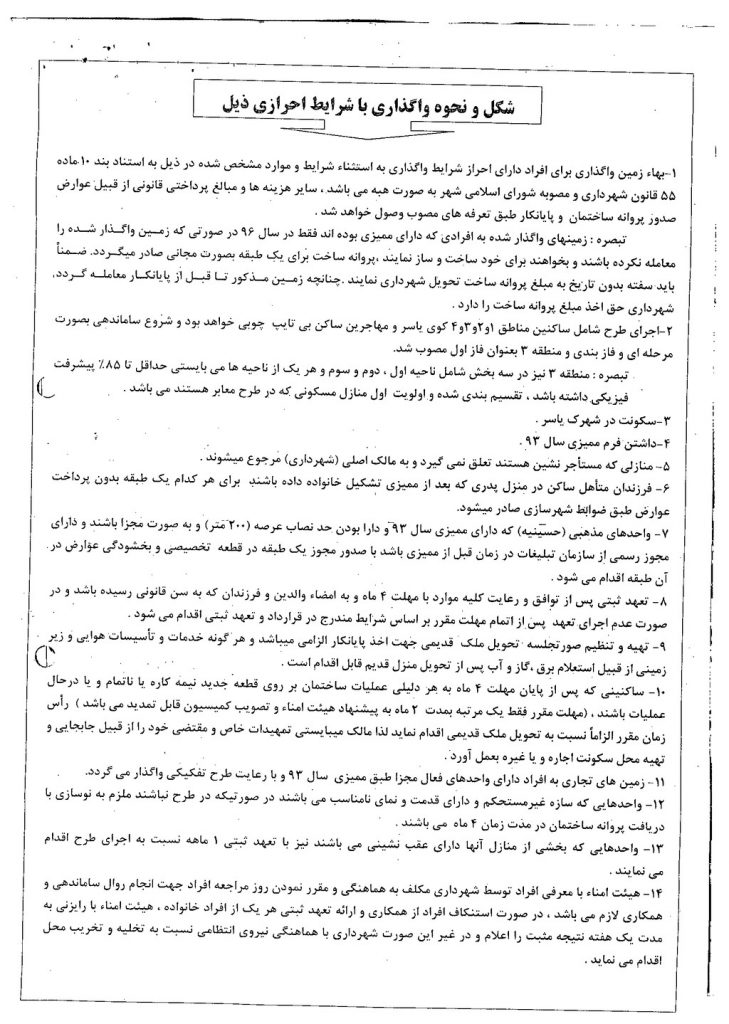 شکل و نحوه واگذاری با شرایط احرازی ذیل
۱-بهاء زمین واگذاری برای افراد دارای احراز شرایط واگذاری به استثناء شرایط و موارد مشخص شده در ذیل به استناد بند ۱۰ ماده
۵۵ قانون شهرداری و مصوبه شورای اسلامی شهر به صورت هبه می باشد ، سایر هزینه ها و مبالغ پرداختی قانونی از قبیل عوارض
صدور پروانه ساختمان و پایانکار طبق تعرفه های مصوب وصول خواهد شد .
تبصره : زمینهای واگذار شده به افرادی که دارای ممیزی بوده اند فقط در سال ۹۶ در صورتی که زمین واگذار شده را
معامله نکرده باشند و بخواهند برای خود ساخت و ساز نمایند ،پروانه ساخت برای یک طبقه بصورت مجانی صادر میگردد. ضمناً
باید سفته بدون تاریخ به مبلغ پروانه ساخت تحویل شهرداری نمایند .چنانچه زمین مذکور تا قبل از پایانکار معامله گردد،
شهرداری حق اخذ مبلغ پروانه ساخت را دارد .
۲-اجرای طرح شامل ساکنین مناطق ۱و۲و۳و۴ کوی یاسر و مهاجرین ساکن بی تایپ چوبی خواهد بود و شروع ساماندهی بصورت
مرحله ای و فاز بندی و منطقه ۳ بعنوان فاز اول مصوب شد.
تبصره : منطقه ۳ نیز در سه بخش شامل ناحیه اول ، دوم و سوم و هر یک از ناحیه ها می بایستی حداقل تا ۸۵٪ پیشرفت
فیزیکی داشته باشد ، تقسیم بندی شده و اولویت اول منازل مسکونی که در طرح معابر هستند می باشد .
۳-سکونت در شهرک یاسر .
۴-داشتن فرم ممیزی سال ۹۳ .
۵- منازلی که مستأجر نشین هستند تعلق نمی گیرد و به مالک اصلی (شهرداری) مرجوع میشوند .
۶- فرزندان متأهل ساکن در منزل پدری که بعد از ممیزی تشکیل خانواده داده باشند برای هر کدام یک طبقه بدون پرداخت
عوارض طبق ضوابط شهرسازی صادر میشود.
۷- واحدهای مذهبی (حسینیه) که دارای ممیزی سال ۹۳ و دارا بودن حد نصاب عرصه (۲۰۰ متر) و به صورت مجزا باشند و دارای
مجوز رسمی از سازمان تبلیغات در زمان قبل از ممیزی باشد با صدور مجوز یک طبقه در قطعه تخصیصی و بخشودگی عوارض در
آن طبقه اقدام می شود .
۸- تعهد ثبتی پس از توافق و رعایت کلیه موارد با مهلت ۴ ماه و به امضاء والدین و فرزندان که به سن قانونی رسیده باشد و در
صورت عدم اجرای تعهد پس از اتمام مهلت مقرر بر اساس شرایط مندرج در قرارداد و تعهد ثبتی اقدام می شود .
۹- تهیه و تنظیم صورتجلسه تحویل ملک قدیمی جهت اخذ پایانکار الزامی میباشد و هر گونه خدمات و تأسیسات هوایی و زیر
زمینی از قبیل استعلام برق ،گاز و آب پس از تحویل منزل قدیم قابل اقدام است .
۱۰- ساکنینی که پس از پایان مهلت ۴ ماه به هر دلیلی عملیات ساختمان بر روی قطعه جدید نیمه کاره یا ناتمام و یا درحال
عملیات باشند ، (مهلت مقرر فقط یک مرتبه بمدت ۲ ماه به پیشنهاد هیئت امناء و تصویب کمیسیون قابل تمدید می باشد ) رأس
زمان مقرر الزاماً نسبت به تحویل ملک قدیمی اقدام نماید لذا مالک میبایستی تمهیدات خاص و مقتضی خود را از قبیل جابجایی و
تهیه محل سکونت اجاره و یا غیره بعمل آورد .
۱۱- زمین های تجاری به افراد دارای واحدهای فعال مجزا طبق ممیزی سال ۹۳ و با رعایت طرح تفکیکی واگذار می گردد.
۱۲- واحدهایی که سازه غیرمستحکم و دارای قدمت و نمای نامناسب می باشند در صورتیکه در طرح نباشند ملزم به نوسازی با
دریافت پروانه ساختمان در مدت زمان ۴ ماه می باشند .
۱۳- واحدهایی که بخشی از منازل آنها دارای عقب نشینی می باشند نیز با تعهد ثبتی ۱ ماهه نسبت به اجرای طرح اقدام
می نمایند .
۱۴- هیئت امناء با معرفی افراد توسط شهرداری مکلف به هماهنگی و مقرر نمودن روز مراجعه افراد جهت انجام روال ساماندهی و
همکاری لازم می باشد ، در صورت استنکاف افراد از همکاری و ارائه تعهد ثبتی هر یک از افراد خانواده ، هیئت امناء با رایزنی به
مدت یک هفته نتیجه مثبت را اعلام و در غیر این صورت شهرداری با هماهنگی نیروی انتظامی نسبت به تخلیه و تخریب محل
اقدام می نماید .